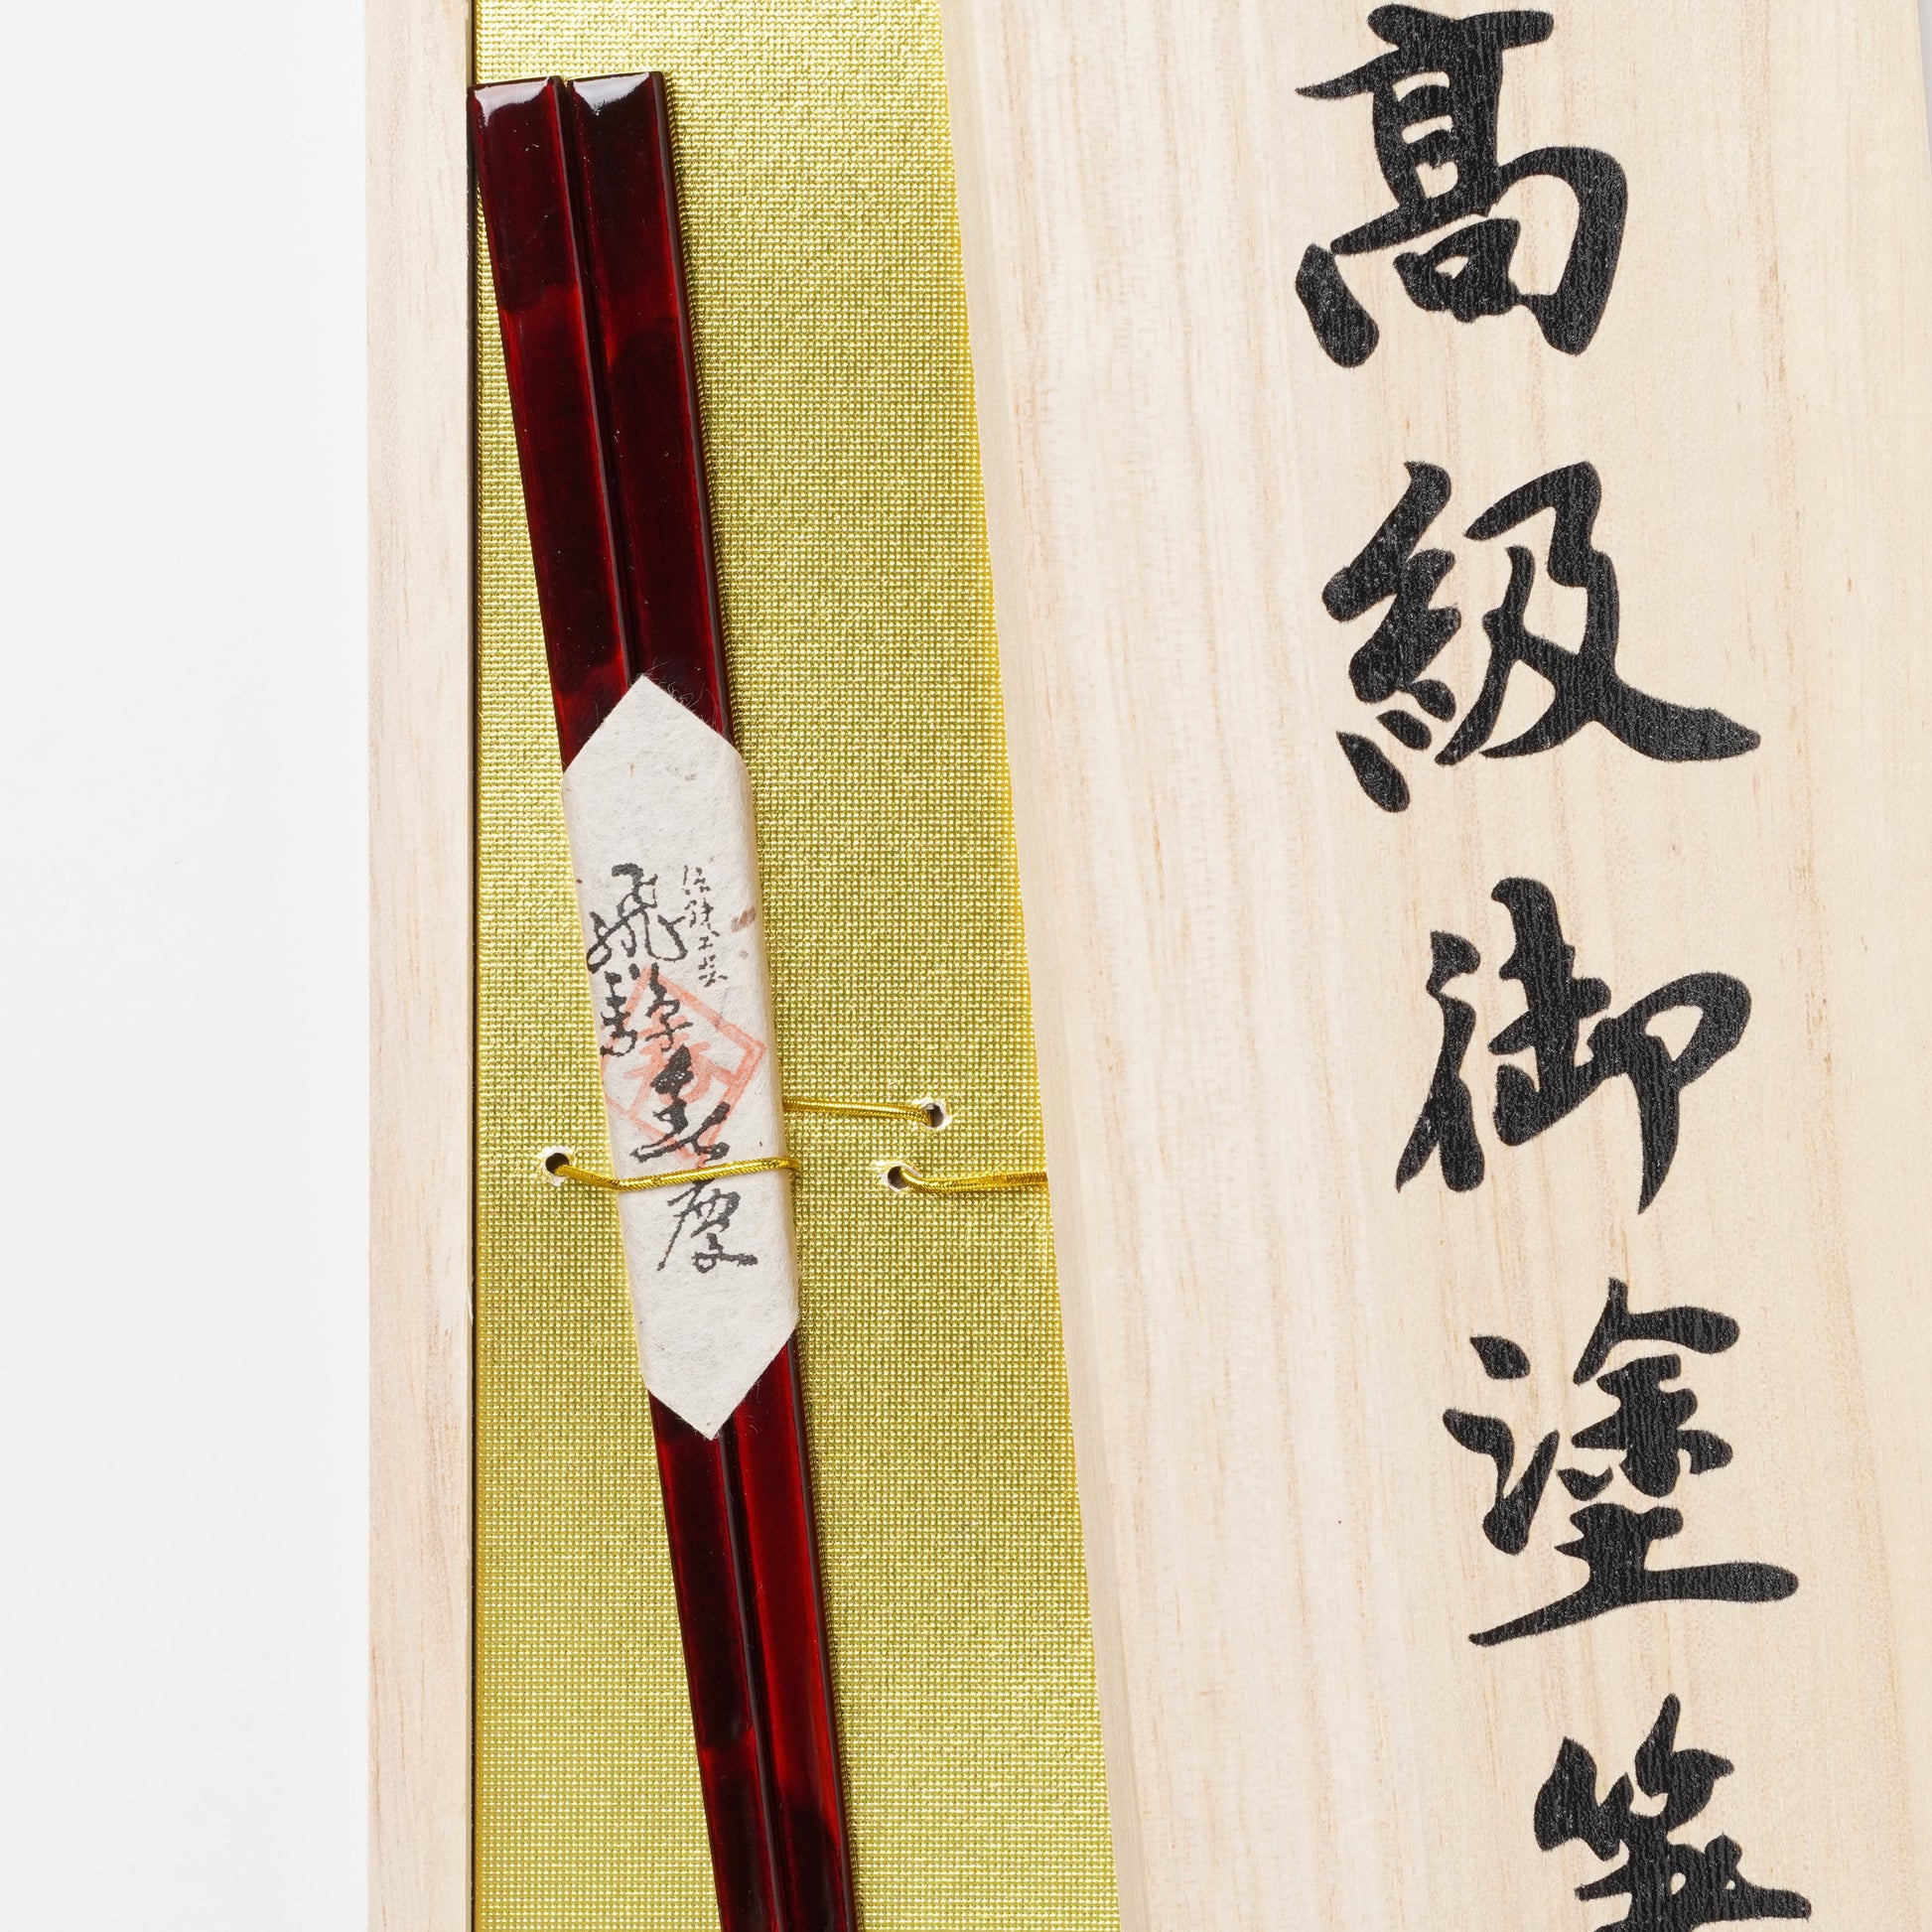 高級御塗箸
飛騨春慶
伝統工芸